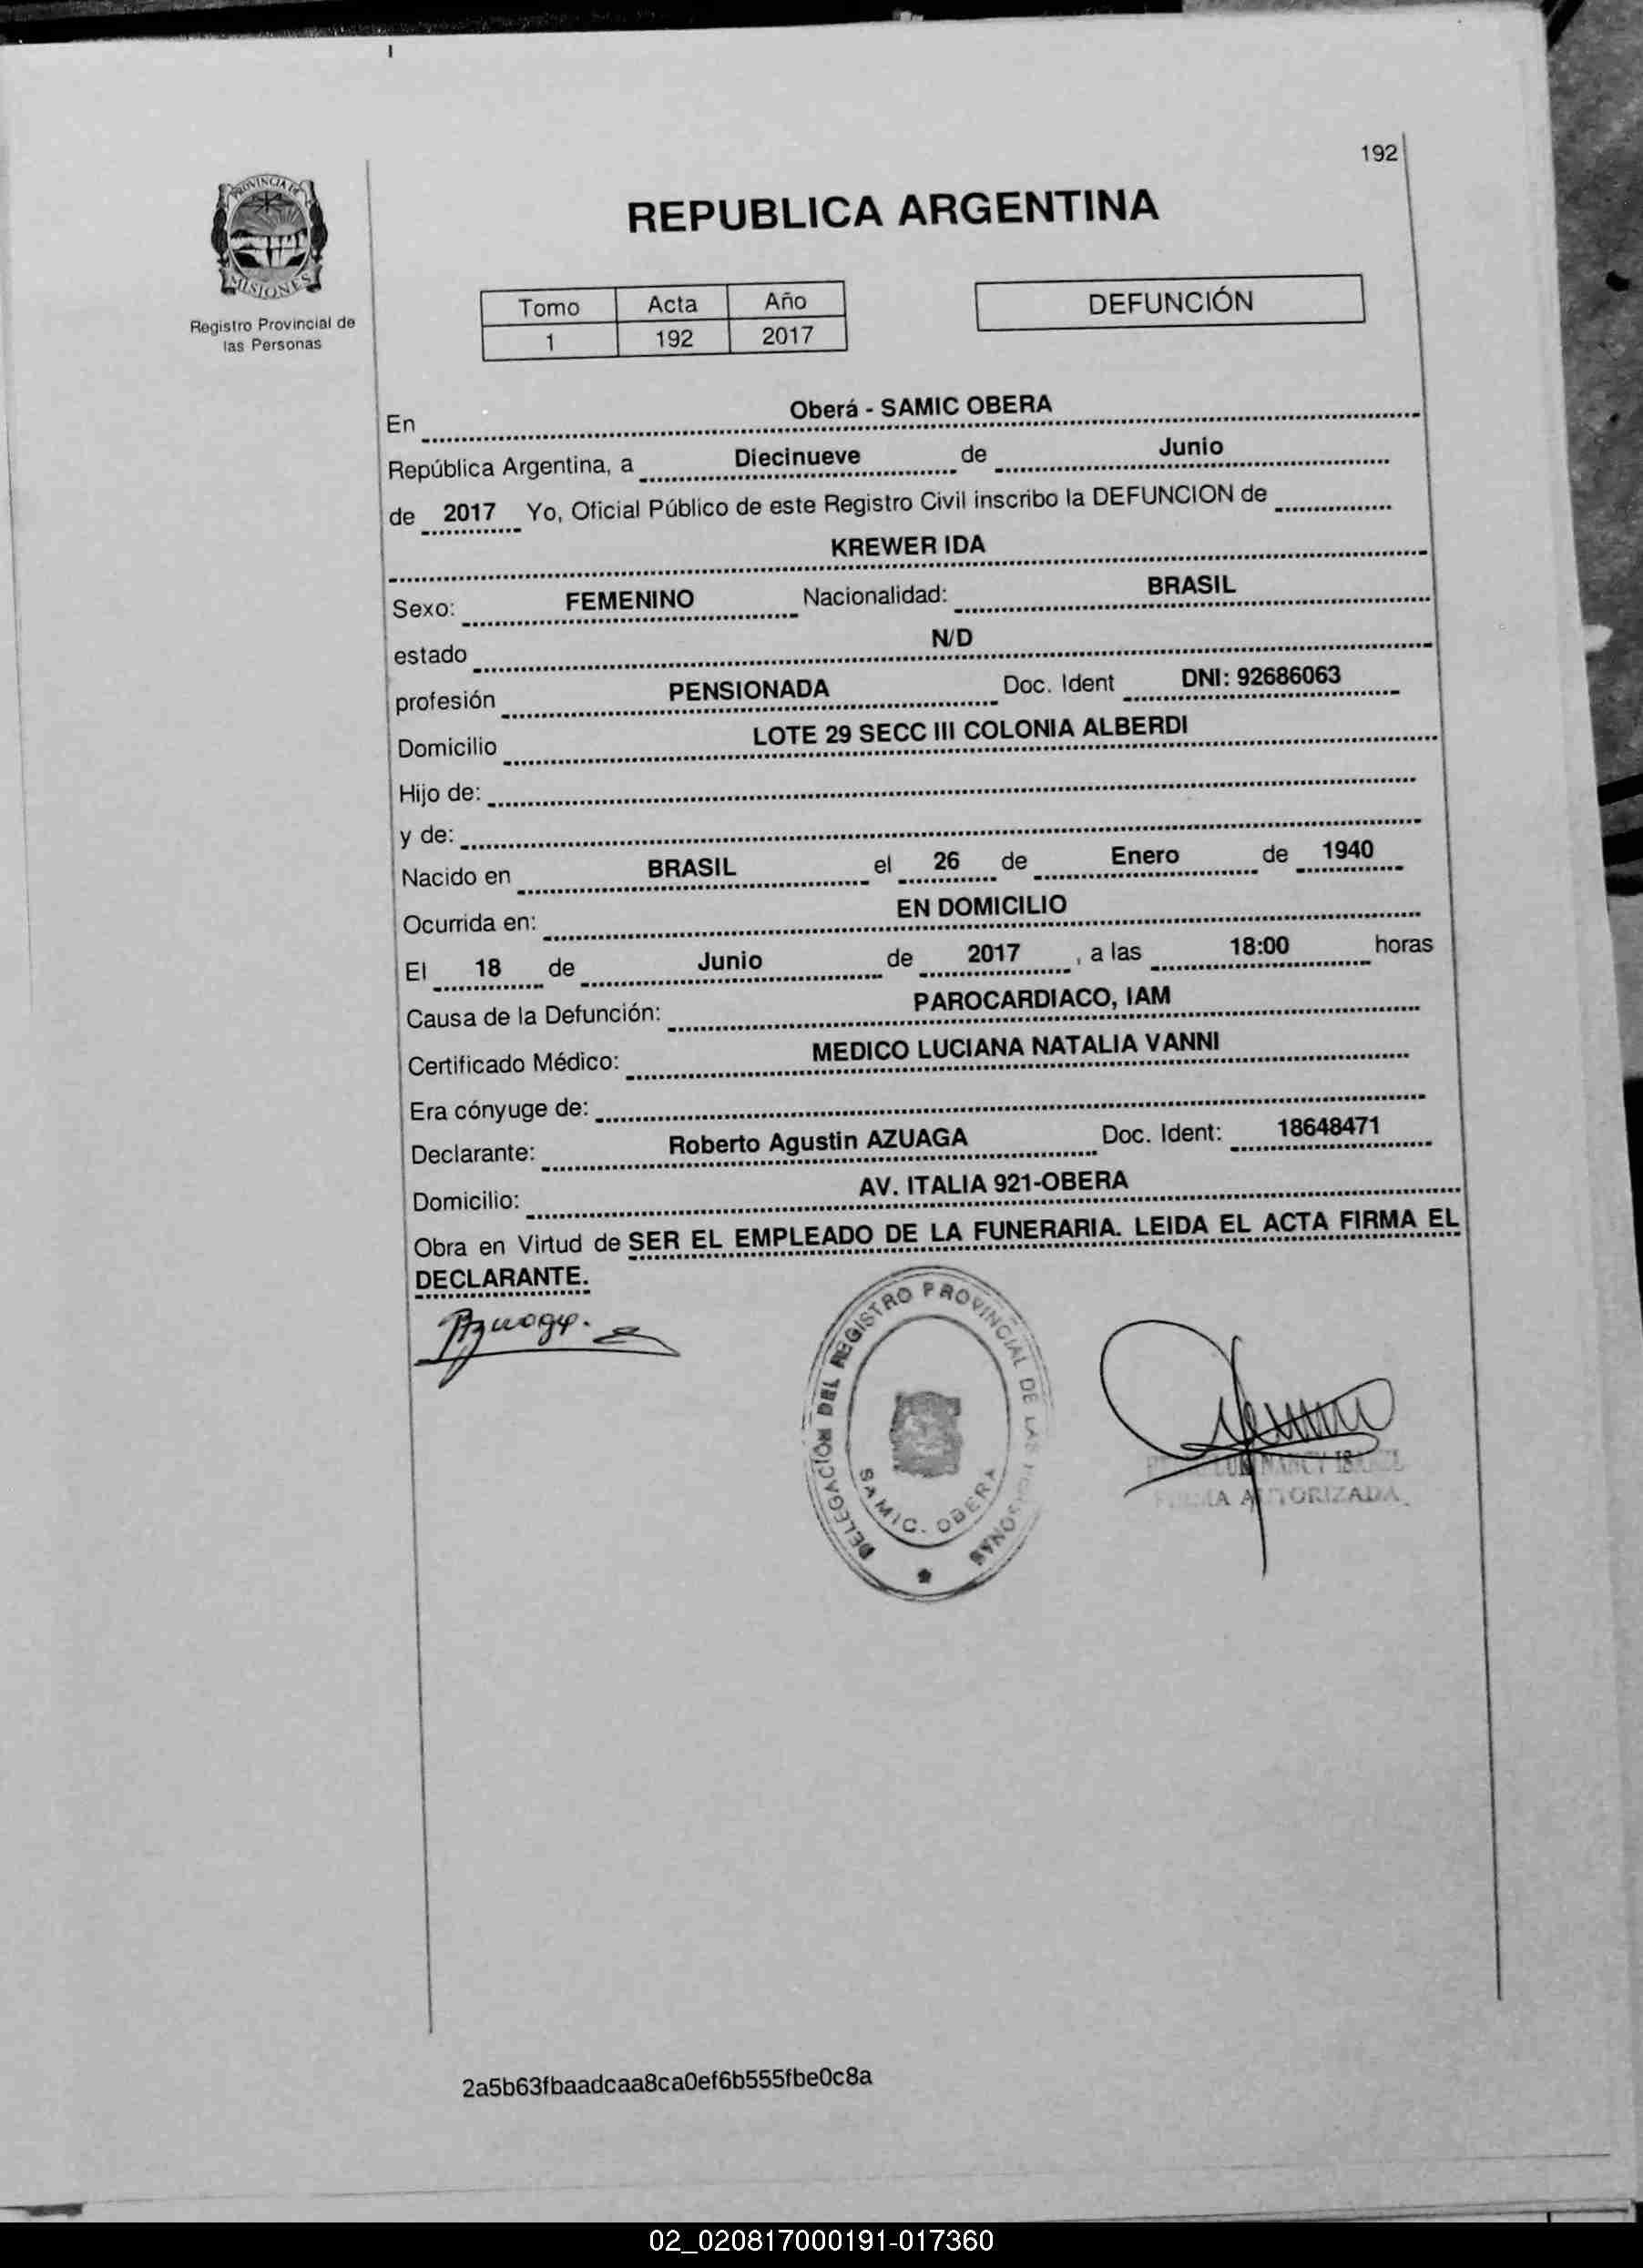 192
PROVINCIA DE
MISIONES
Registro Provincial de
las Personas
REPUBLICA ARGENTINA
Tomo Acta Año
1 192 2017
DEFUNCIÓN
En Oberá - SAMIC OBERA
República Argentina, a Diecinueve de Junio
de 2017 Yo, Oficial Público de este Registro Civil inscribo la DEFUNCION de
KREWER IDA
Sexo: FEMENINO Nacionalidad: BRASIL
estado N/D
profesión PENSIONADA Doc. Ident DNI: 92686063
Domicilio LOTE 29 SECC III COLONIA ALBERDI
Hijo de:
y de:
Nacido en BRASIL el 26 de Enero de 1940
Ocurrida en: EN DOMICILIO
El 18 de Junio de 2017 , a las 18:00 horas
Causa de la Defunción: PAROCARDIACO, IAM
Certificado Médico: MEDICO LUCIANA NATALIA VANNI
Era cónyuge de:
Declarante: Roberto Agustin AZUAGA Doc. Ident: 18648471
Domicilio: AV. ITALIA 921-OBERA
Obra en Virtud de SER EL EMPLEADO DE LA FUNERARIA. LEIDA EL ACTA FIRMA EL
DECLARANTE.
DELEGACIÓN DEL REGISTRO PROVINCIAL DE LAS PERSONAS
SAMIC. OBERA
NANCY
FIRMA AUTORIZADA
2a5b63fbaadcaa8ca0ef6b555fbe0c8a
02_020817000191-017360